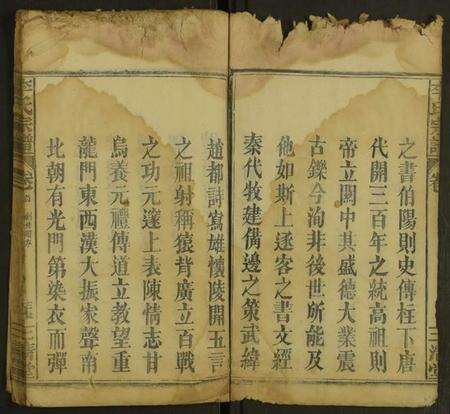 李氏宗譜 卷
之書伯陽則史傳柱下唐
代開三百年之統高祖則
帝立關中其盛德大業震
古鑠今洵非後世所能及
他如斯上逐客之書文經
秦代牧建備邊之策武緯
趙都詩寫雄懷陵開五言
之祖射稱猿背廣立百戰
之功元邃上表陳情志甘
烏養元禮傳道立教望重
龍門東西漢大振家聲南
北朝有光門第染衣而彈
李氏宗譜 卷